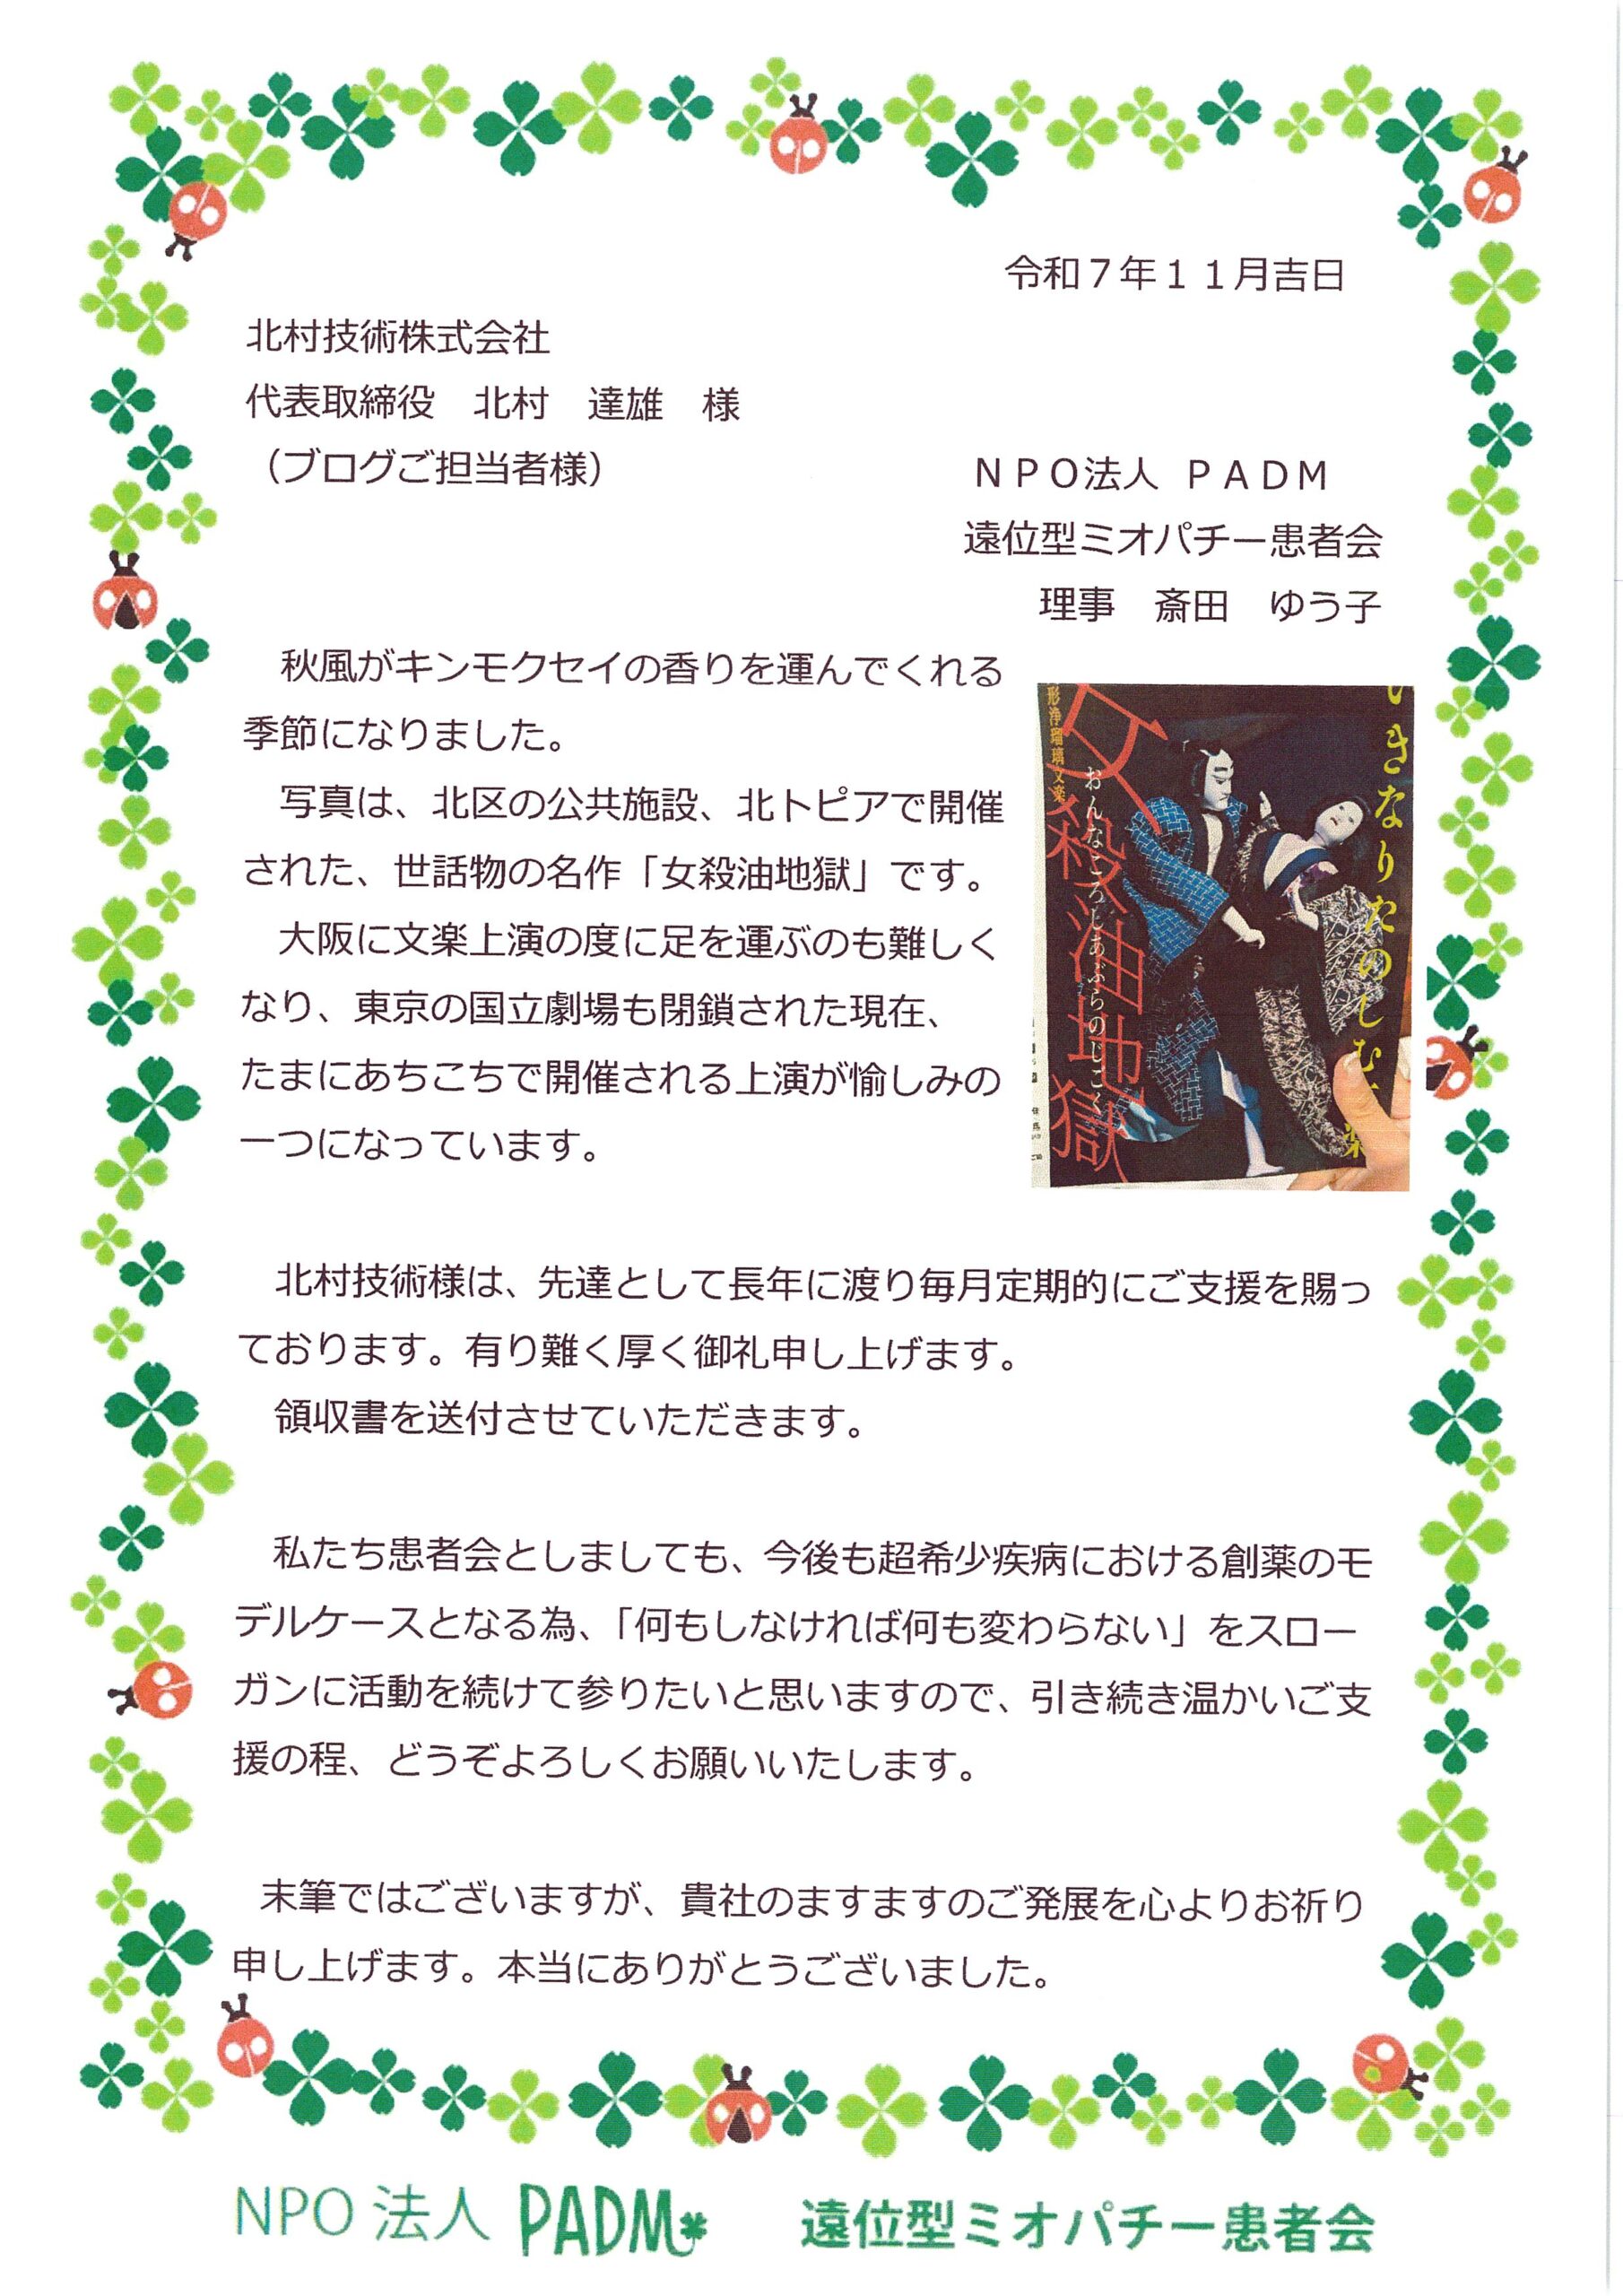 令和７年１１月吉日
北村技術株式会社
代表取締役　北村　達雄　様
（ブログご担当者様）
ＮＰＯ法人 ＰＡＤＭ
遠位型ミオパチー患者会
理事　斎田　ゆう子
秋風がキンモクセイの香りを運んでくれる
季節になりました。
写真は、北区の公共施設、北トピアで開催
された、世話物の名作「女殺油地獄」です。
大阪に文楽上演の度に足を運ぶのも難しく
なり、東京の国立劇場も閉鎖された現在、
たまにあちこちで開催される上演が愉しみの
一つになっています。
いきなりたのしむ
女殺油地獄
おんなころしあぶらのじごく
形浄瑠璃文楽
北村技術様は、先達として長年に渡り毎月定期的にご支援を賜っ
ております。有り難く厚く御礼申し上げます。
領収書を送付させていただきます。
私たち患者会としましても、今後も超希少疾病における創薬のモ
デルケースとなる為、「何もしなければ何も変わらない」をスロー
ガンに活動を続けて参りたいと思いますので、引き続き温かいご支
援の程、どうぞよろしくお願いいたします。
末筆ではございますが、貴社のますますのご発展を心よりお祈り
申し上げます。本当にありがとうございました。
NPO 法人 PADM 遠位型ミオパチー患者会